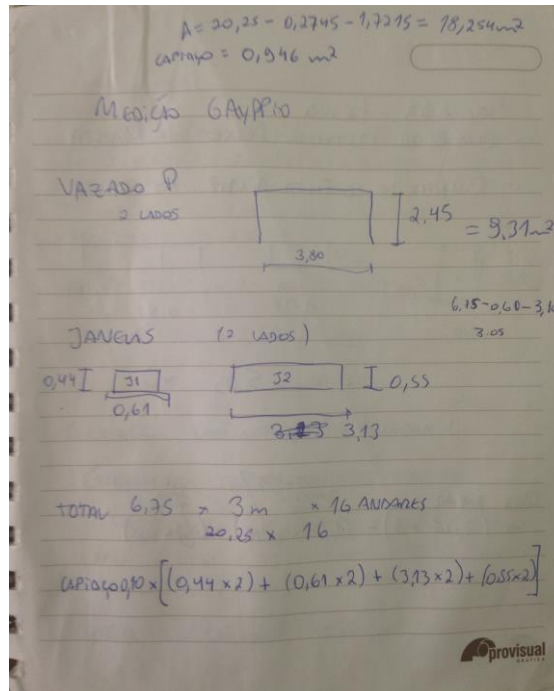 A = 20,25 - 0,2745 - 1,7215 = 18,254m²
CAPIAÇO = 0,946 m²
MEDIÇÃO
VAZADO P
2 LADOS
2,45
= 9,31m²
3,80
6,75-0,60-3,1
3.05
JANELAS (2 LADOS)
0,44 J1 J2 0,55
0,61 3,13
TOTAL 6,75 x 3m x 16 ANDARES
20,25 x 16
CAPIAÇO 0,10 x [(0,44 x 2) + (0,61 x 2) + (3,13 x 2) + (0,55 x 2)]
provisual
GRÁFICA